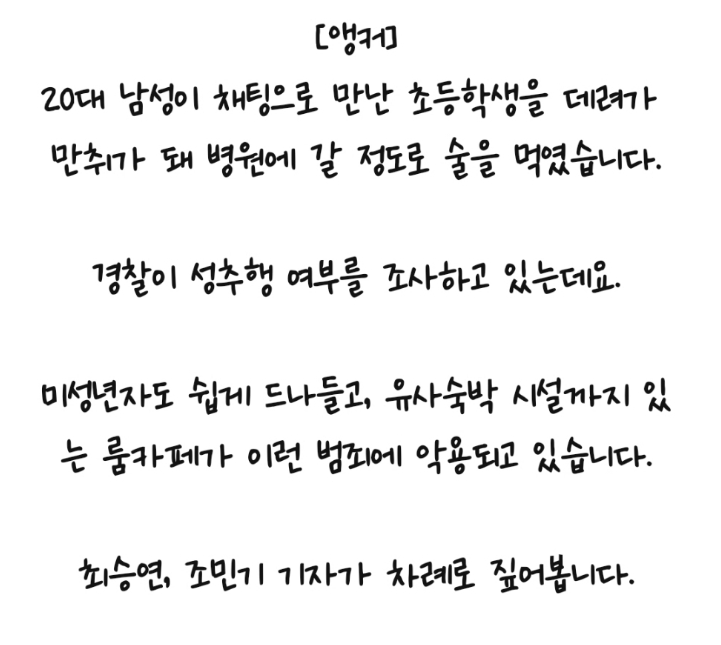 [앵커]
20대 남성이 채팅으로 만난 초등학생을 데려가
만취가 돼 병원에 갈 정도로 술을 먹였습니다.
경찰이 성추행 여부를 조사하고 있는데요.
미성년자도 쉽게 드나들고, 유사숙박 시설까지 있
는 룸카페가 이런 범죄에 악용되고 있습니다.
최승연, 조민기 기자가 차례로 짚어봅니다.